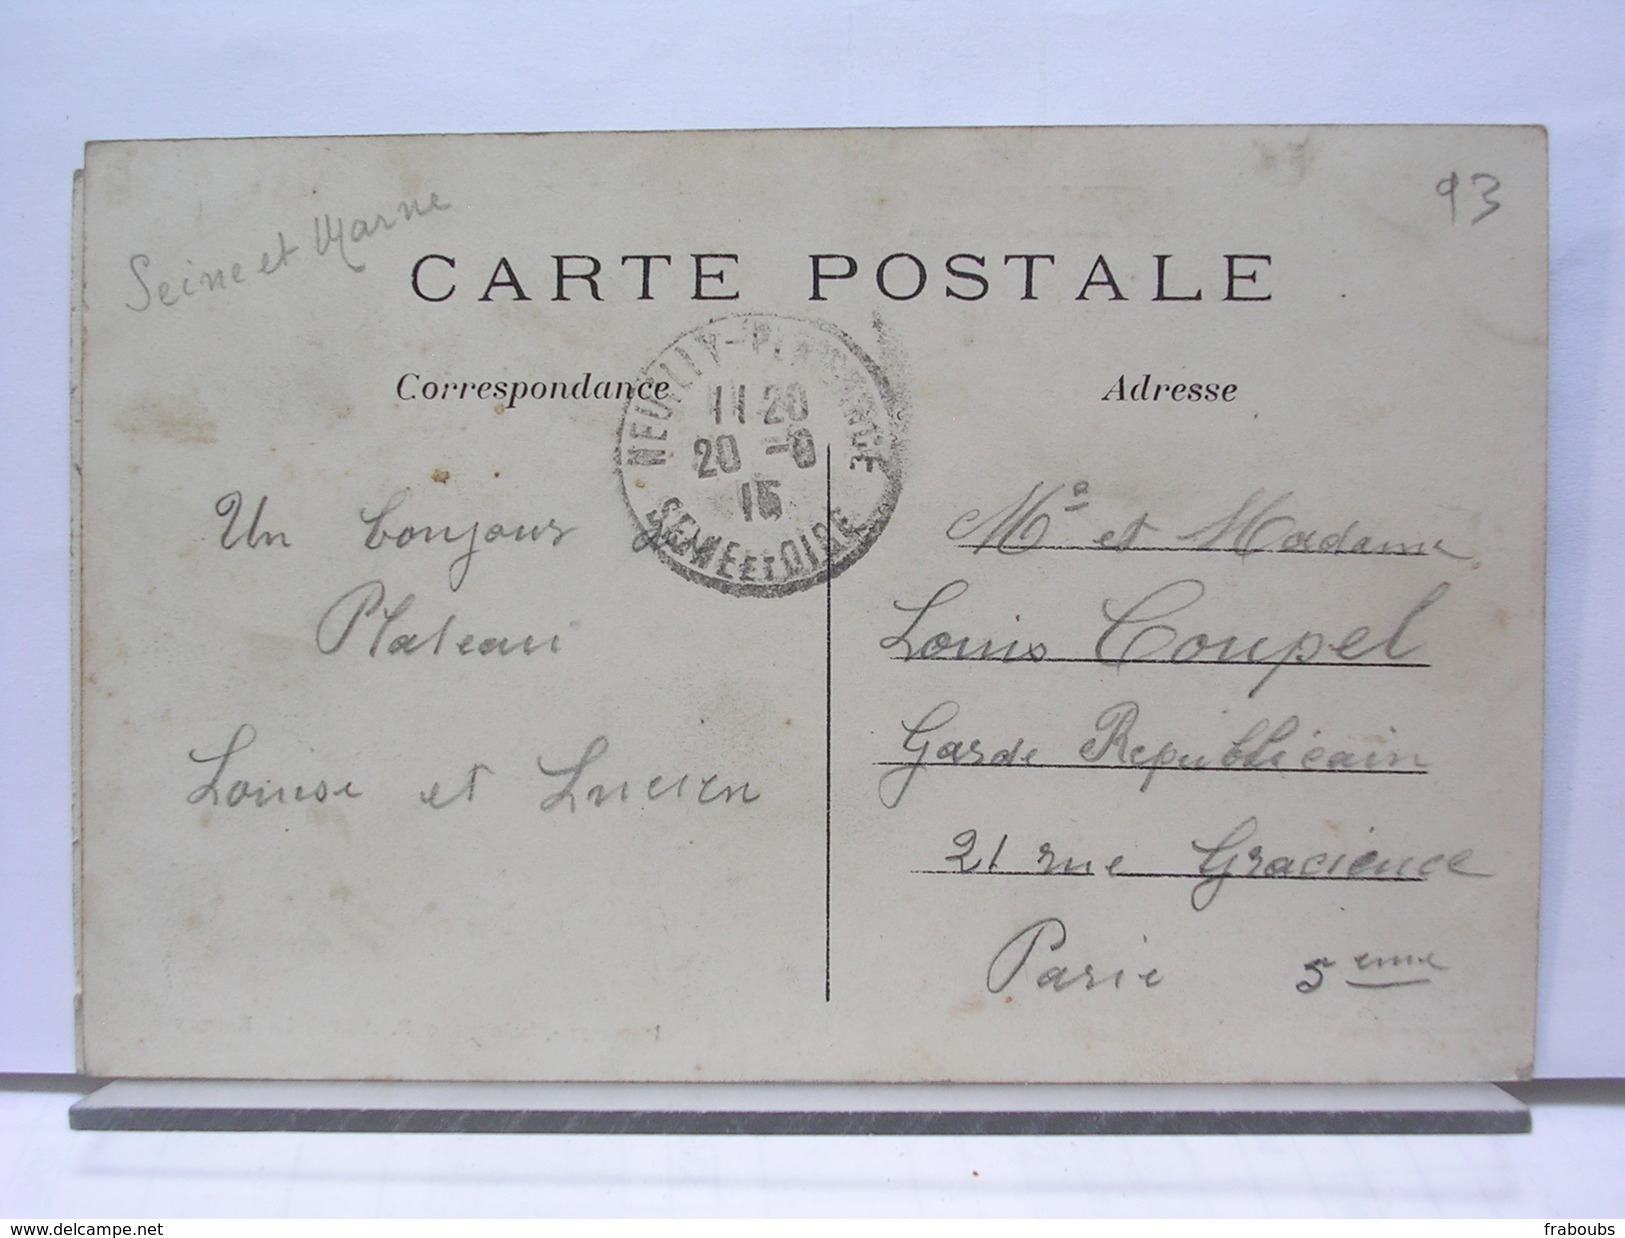 93
Seine et Marne
CARTE POSTALE
Correspondance
Adresse
NEUILLY-PLAISANCE
11 20
20 -8
15
SEINE ET OISE
Un bonjour du
Plateau
Louise et Lucien
Mr et Madame
Louis Coupel
Garde Republicain
21 rue Gracieuce
Paris 5 eme
www.delcampe.net
fraboubs